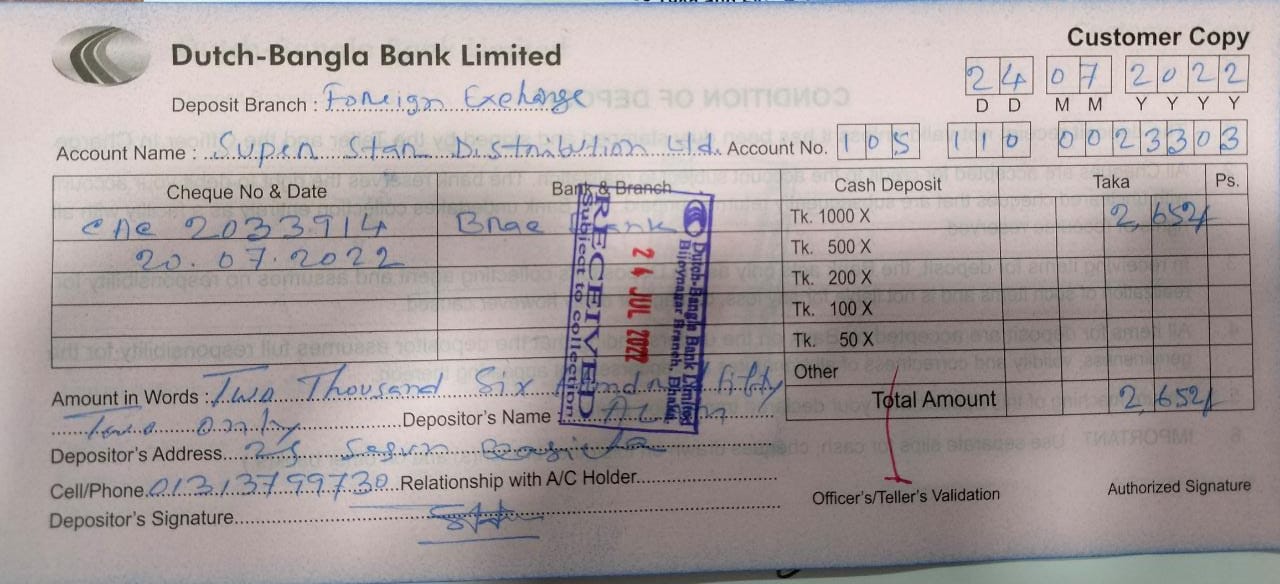 Customer Copy
Dutch-Bangla Bank Limited
24 07 2022
D D M M Y Y Y Y
Deposit Branch : Foreign Exchange
Account Name : Super Star Distribution Ltd. Account No. 105 110 0023303
Cheque No & Date Bank & Branch Cash Deposit Taka Ps.
CAC 2033914 Brac Bank Tk. 1000 X 2,652/
20.07.2022 Tk. 500 X
Tk. 200 X
Tk. 100 X
Tk. 50 X
Other
Total Amount 2,652/
Dutch-Bangla Bank Limited
Bijoynagar Branch, Dhaka
24 JUL 2022
RECEIVED
Subject to collection
Amount in Words : Two Thousand Six Hundred fifty
Two Only Depositor's Name :
Depositor's Address 25 Segun Bagicha
Cell/Phone. 01313799730 Relationship with A/C Holder
Depositor's Signature
Officer's/Teller's Validation Authorized Signature